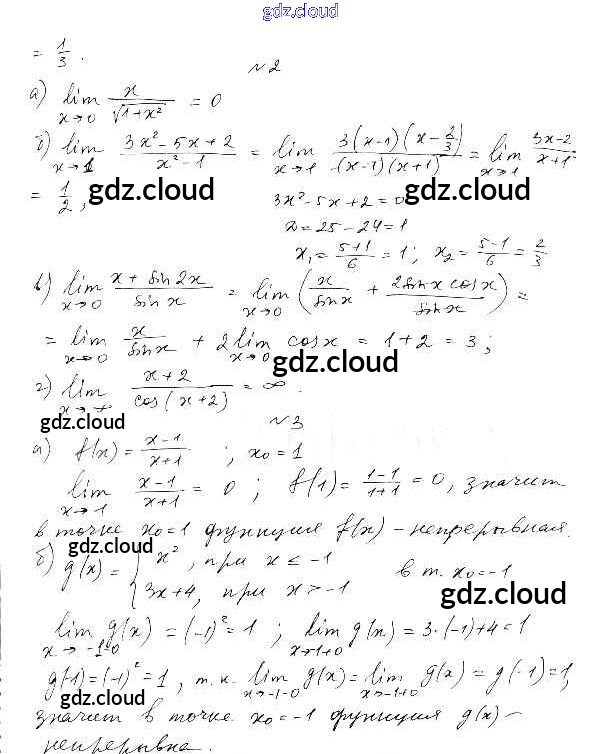 gdz.cloud
= 1/3 .
№2
а) lim x→0 x/√(1+x²) = 0
б) lim x→1 (3x²-5x+2)/(x²-1) = lim x→1 3(x-1)(x-2/3)/((x-1)(x+1)) = lim x→1 (3x-2)/(x+1)
= 1/2 ; 3x²-5x+2=0
gdz.cloud gdz.cloud
D=25-24=1
x₁=(5+1)/6=1; x₂=(5-1)/6=2/3
в) lim x→0 (x+sin2x)/sinx = lim x→0 (x/sinx + 2sinx cosx/sinx) =
= lim x→0 x/sinx + 2 lim x→0 cosx = 1+2=3;
gdz.cloud
г) lim (x+2)/cos(x+2) = ∞.
gdz.cloud
№3
gdz.cloud
а) f(x)=(x-1)/(x+1) ; x₀=1
lim x→1 (x-1)/(x+1) = 0 ; f(1)=(1-1)/(1+1)=0, значит
в точке x₀=1 функция f(x) - непрерывная.
gdz.cloud
б) g(x)={x², при x≤-1 в т. x₀=-1
3x+4, при x>-1
gdz.cloud
lim x→-1-0 g(x)=(-1)²=1 ; lim x→-1+0 g(x)=3·(-1)+4=1
g(-1)=(-1)²=1, т.к. lim x→-1-0 g(x)=lim x→-1+0 g(x)=g(-1)=1,
gdz.cloud gdz.cloud
значит в точке x₀=-1 функция g(x)-
непрерывна.